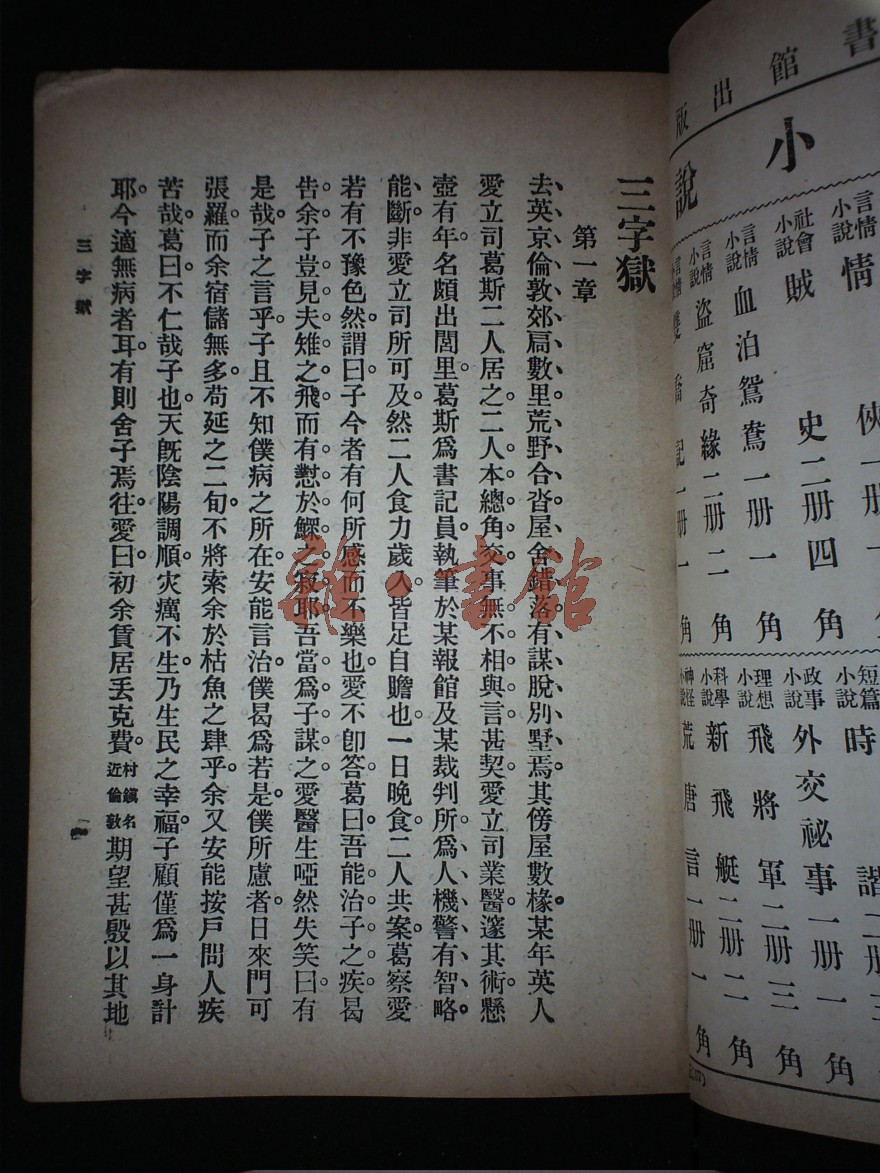 書館出版
小說
言情小說 情 俠一册
社會小說 賊 史二册四角
言情小說 血泊鴛鴦一册一角
言情小說 盜窟奇緣二册二角
言情小說 雙喬記一册一
短篇小說 時 諧二册三
政事小說 外交祕事一册一角
理想小說 飛將軍二册三角
科學小說 新飛艇二册二角
神怪小說 荒唐言一册一角
三字獄
第一章
去英京倫敦郊扃數里荒野合沓屋舍錯落有謀脫別墅焉其傍屋數椽某年英人
愛立司葛斯二人居之二人本總角交事無不相與言甚契愛立司業醫邃其術懸
壺有年名頗出閭里葛斯爲書記員執筆於某報館及某裁判所爲人機警有智略
能斷非愛立司所可及然二人食力歲入皆足自贍也一日晚食二人共案葛察愛
若有不豫色然謂曰子今者有何所感而不樂也愛不卽答葛曰吾能治子之疾曷
告余子豈見夫雉之飛而有懟於鰥之寂耶吾當爲子謀之愛醫生啞然失笑曰有
是哉子之言乎子且不知僕病之所在安能言治僕曷爲若是僕所慮者日來門可
張羅而余宿儲無多苟延之二旬不將索余於枯魚之肆乎余又安能按戶問人疾
苦哉葛曰不仁哉子也天旣陰陽調順灾癘不生乃生民之幸福子顧僅爲一身計
耶今適無病者耳有則舍子焉往愛曰初余賃居丢克費村鎭名近倫敦期望甚殷以其地
三字獄
一
雜·書館